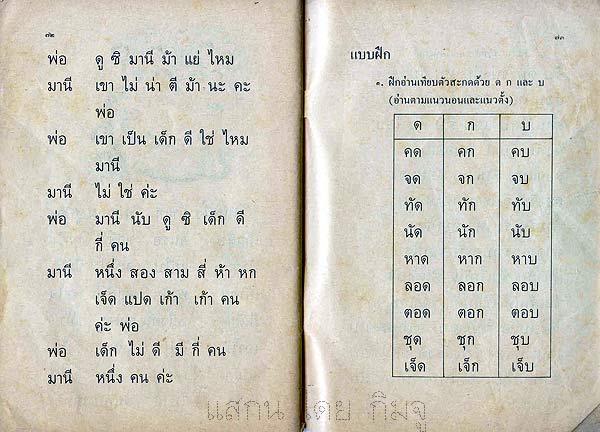 ๗๒
พ่อ ดู ซิ มานี ม้า แย่ ไหม
มานี เขา ไม่ น่า ตี ม้า นะ คะ
พ่อ
พ่อ เขา เป็น เด็ก ดี ใช่ ไหม
มานี
มานี ไม่ ใช่ ค่ะ
พ่อ มานี นับ ดู ซิ เด็ก ดี
กี่ คน
มานี หนึ่ง สอง สาม สี่ ห้า หก
เจ็ด แปด เก้า เก้า คน
ค่ะ พ่อ
พ่อ เด็ก ไม่ ดี มี กี่ คน
มานี หนึ่ง คน ค่ะ
๗๓
แบบฝึก
๑. ฝึกอ่านเทียบตัวสะกดด้วย ด ก และ บ
(อ่านตามแนวนอนและแนวตั้ง)
ด ก บ
คด คก คบ
จด จก จบ
ทัด ทัก ทับ
นัด นัก นับ
หาด หาก หาบ
ลอด ลอก ลอบ
ตอด ตอก ตอบ
ชุด ชุก ชุบ
เจ็ด เจ็ก เจ็บ
แสกน โดย กิมจู